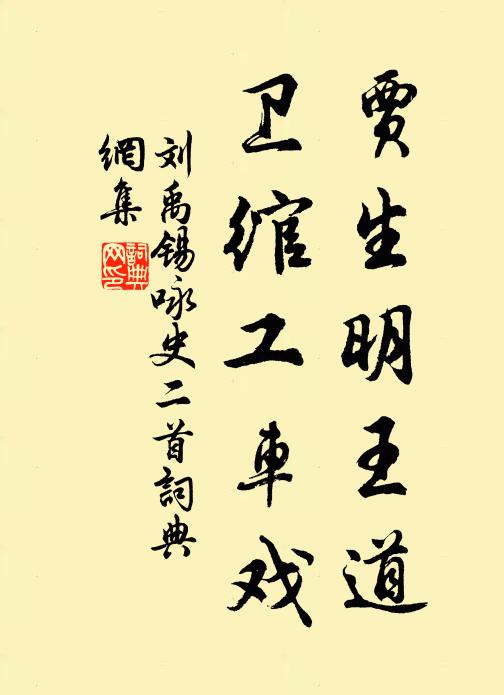 贾生明王道
卫绾工車戏
刘禹锡咏史二首詞典
網集
詞典
网印